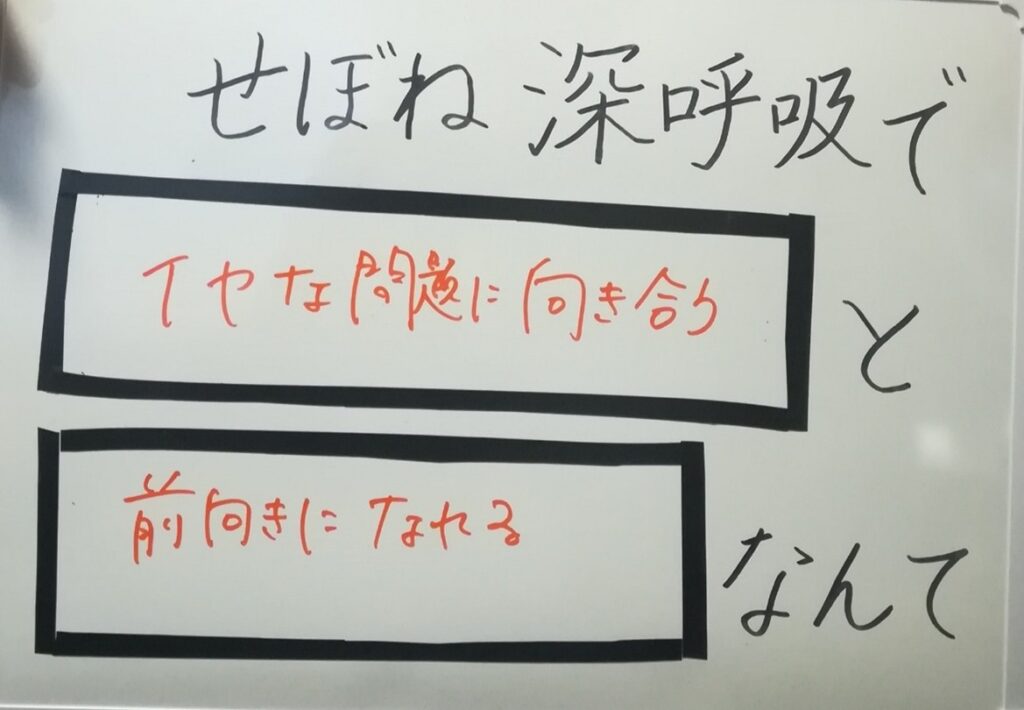 せぼね深呼吸で
イヤな問題に向き合う
と
前向きになれる
なんて